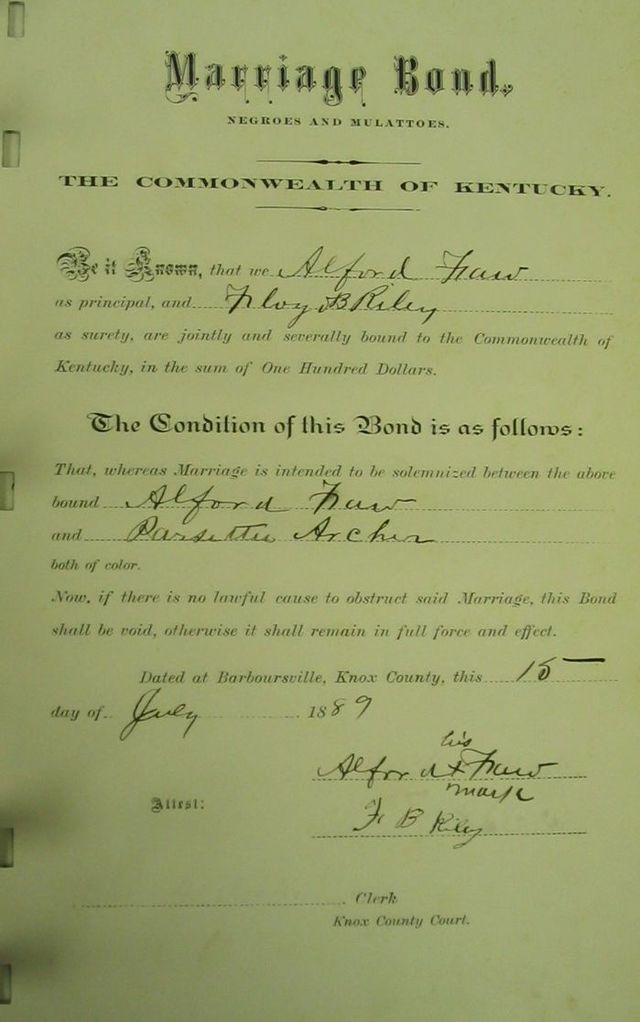 Marriage Bond.
NEGROES AND MULATTOES.
THE COMMONWEALTH OF KENTUCKY.
Be it Known, that we Alford Faw
as principal, and Floyd B Riley
as surety, are jointly and severally bound to the Commonwealth of
Kentucky, in the sum of One Hundred Dollars.
The Condition of this Bond is as follows:
That, whereas Marriage is intended to be solemnized between the above
bound Alford Faw
and Archer
both of color.
Now, if there is no lawful cause to obstruct said Marriage, this Bond
shall be void, otherwise it shall remain in full force and effect.
Dated at Barboursville, Knox County, this 15
day of July 1889
his
Alford x Faw
mark
Attest: F B Riley
Clerk
Knox County Court.